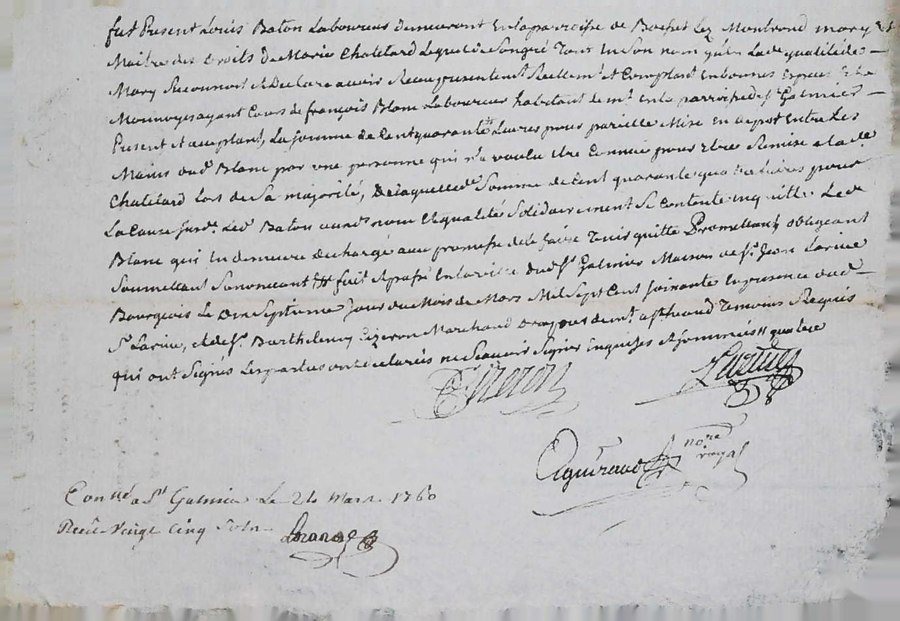 fut Present Louis Baton Laboureur demeurant En la parroisse de Boesset Lez Montrond mary Et
Maitre des Droits de Marie Chatelard Lequel de Songré Tant En Son nom qu'en Lade qualité de
Mary Reconnoit et Declare avoir Reçeu presentemt Reellemt et Comptant En bonnes Especes Et de
Monnoyes ayant Cours de françois Blanc Laboureur habitant de En la parroisse de St Galmier
Present et acceptant, La somme de Cent quarante Livres pour pareille Mise en depot Entre Les
Mains dud Blanc par une personne qui n'a voulu Etre Connue pour Etre Remise a lade
Chatelard Lors de Sa majorité, De laquelle de Somme de Cent quarante quatre Livres pour
La Cause Led Baton aux nom Et qualité Solidairement Se Contente En quitte Led
Blanc qui En demeure decharge avec promesse de le faire Tenir quitte Promettant obligeant
Soumettant Renonceant fait Et passé En la ville dud St Galmier Maison de Sr Jean Larive
Bourgeois Le Septieme Jour du Mois de Mars Mil Sept Cent soixante En presence dud
Sr Larive, et de Sr Barthelemy Ezeron Marchand de Temoins Requis
qui ont Signés Les parties ont declarés ne Scavoir Signer Enquises Et Sommées
Larive
nore
royal
Conlle a St Galmier Le 24 Mars 1760
Receu Vingt Cinq Sols